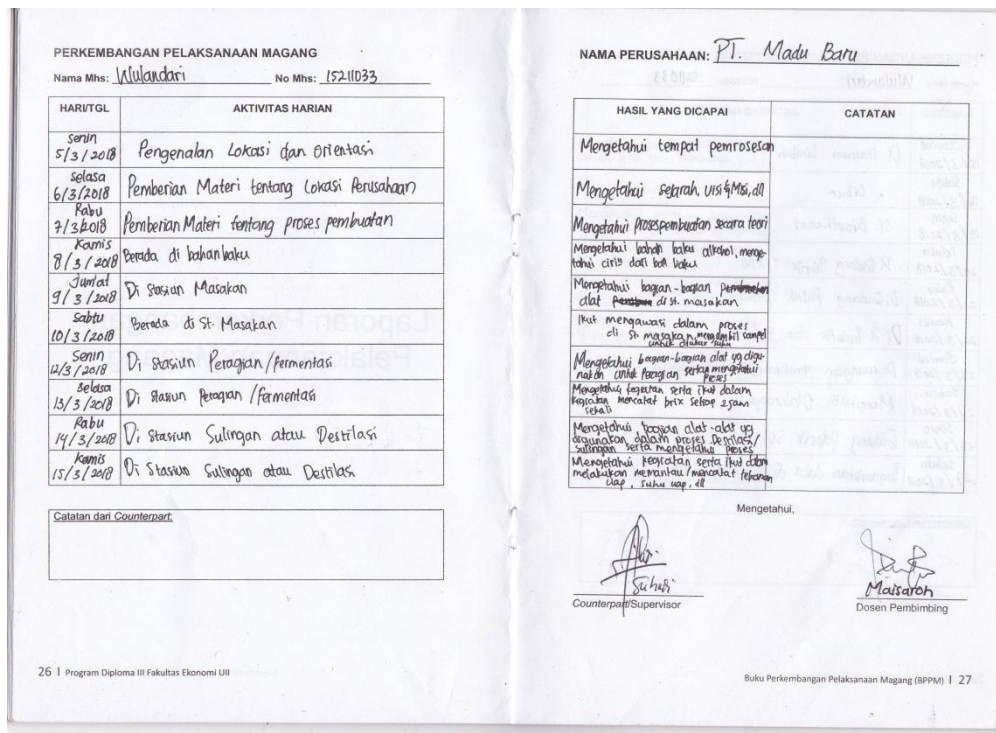 PERKEMBANGAN PELAKSANAAN MAGANG
Nama Mhs: Wulandari No Mhs: 15211033
HARI/TGL AKTIVITAS HARIAN
Senin
5/3/2018 Pengenalan Lokasi dan Orientasi
Selasa
6/3/2018 Pemberian Materi tentang Lokasi Perusahaan
Rabu
7/3/2018 Pemberian Materi tentang proses pembuatan
Kamis
8/3/2018 Berada di bahan baku
Jum'at
9/3/2018 Di Stasiun Masakan
Sabtu
10/3/2018 Berada di St. Masakan
Senin
12/3/2018 Di Stasiun Peragian/fermentasi
Selasa
13/3/2018 Di Stasiun Peragian/fermentasi
Rabu
14/3/2018 Di Stasiun Sulingan atau Destilasi
Kamis
15/3/2018 Di Stasiun Sulingan atau Destilasi
Catatan dari Counterpart:
26 | Program Diploma III Fakultas Ekonomi UII
NAMA PERUSAHAAN: PT. Madu Baru
HASIL YANG DICAPAI CATATAN
Mengetahui tempat pemrosesan
Mengetahui sejarah, visi & Misi, dll
Mengetahui proses pembuatan secara teori
Mengetahui bahan baku alkohol, menge-
tahui ciri2 dari bah baku
Mengetahui bagian-bagian
alat di st. masakan
Ikut mengawasi dalam proses
di St. masakan, mengambil sampel
untuk diukur suhu
Mengetahui bagian-bagian alat yg digu-
nakan untuk peragian serta mengetahui
proses
Mengetahui kegiatan serta ikut dalam
kegiatan mencatat brix setiap 2 jam
sekali
Mengetahui bagian alat-alat yg
digunakan dalam proses Destilasi/
sulingan serta mengetahui proses
Mengetahui kegiatan serta ikut dalam
melakukan memantau/mencatat tekanan
uap, suhu uap, dll
Mengetahui,
Suhadi
Counterpart/Supervisor
Maisaroh
Dosen Pembimbing
Buku Perkembangan Pelaksanaan Magang (BPPM) | 27